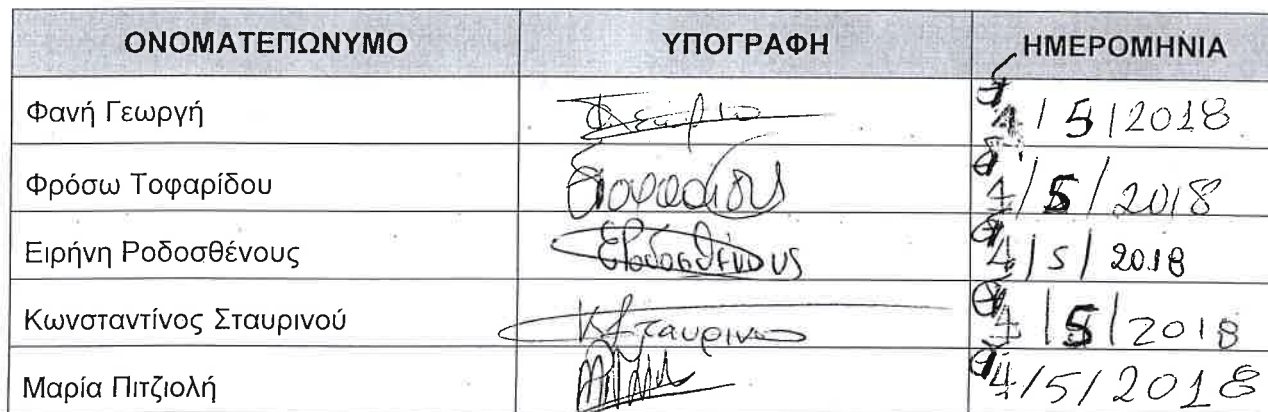 ΟΝΟΜΑΤΕΠΩΝΥΜΟ ΥΠΟΓΡΑΦΗ ΗΜΕΡΟΜΗΝΙΑ
Φανή Γεωργή 4/5/2018
Φρόσω Τοφαρίδου 4/5/2018
Ειρήνη Ροδοσθένους ΕΡοδοσθένους 4/5/2018
Κωνσταντίνος Σταυρινού ΚΣταυρινου 4/5/2018
Μαρία Πιτζιολή 4/5/2018